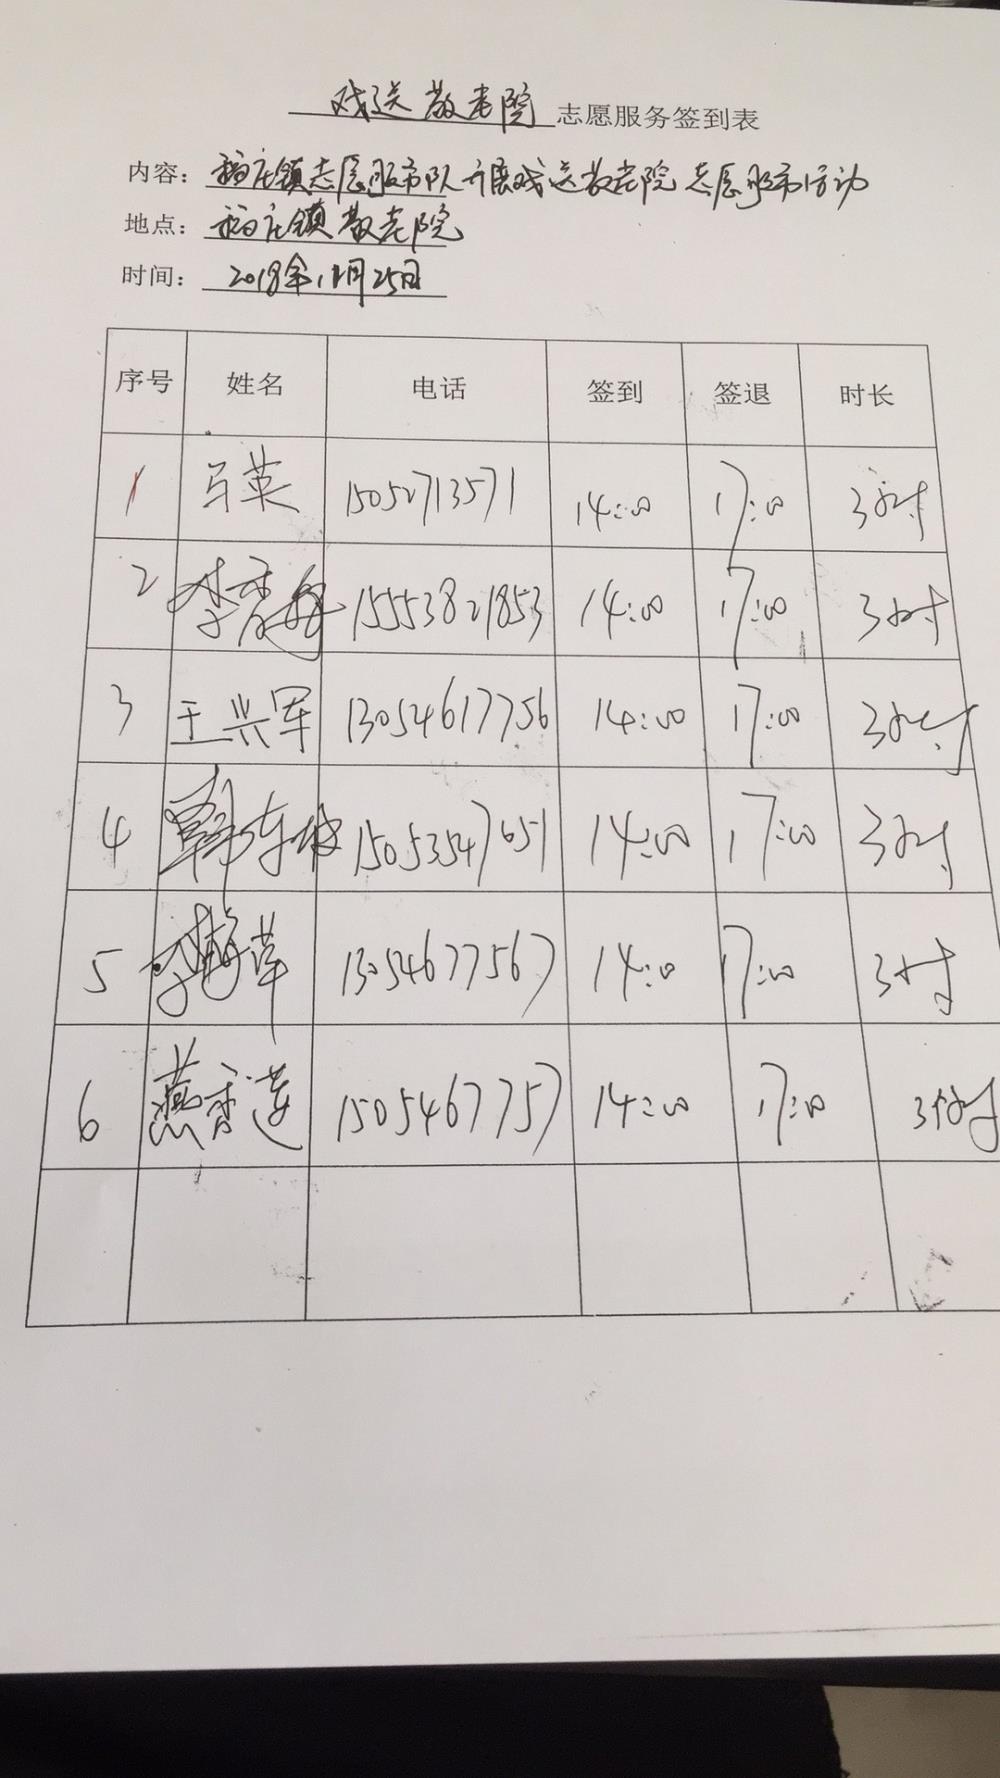 戏送敬老院 志愿服务签到表
内容：稻庄镇志愿服务队开展戏送敬老院志愿服务活动
地点：稻庄镇敬老院
时间：2018年11月25日
序号 姓名 电话 签到 签退 时长
1 马英 15052713571 14:00 17:00 3小时
2 李秀梅 15553821853 14:00 17:00 3小时
3 王兴军 13054617756 14:00 17:00 3小时
4 韩东 15053547651 14:00 17:00 3小时
5 李梅萍 13054677567 14:00 17:00 3小时
6 燕香莲 1505467757 14:00 17:00 3小时